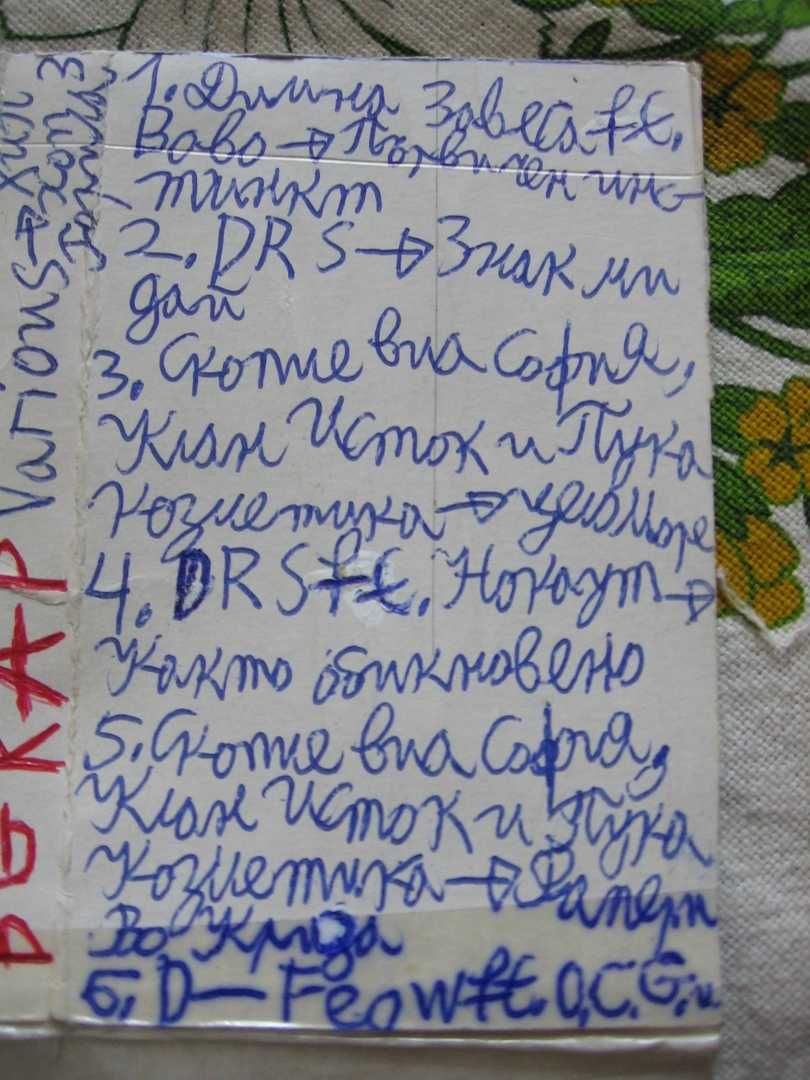 1. Димна Завеса ft.
Вово → Първичен инс-
тинкт
2. DRS → Знак ми
дай
3. Скопие виа София,
Клан Исток и Пука
Козметика → Цело море
4. DRS ft. Нокаут →
Както обикновено
5. Скопие виа София,
Клан Исток и Пука
Козметика → Рапери
Во Криза
6. D—Feow ft. O.C.G. и
Various → Хип
хоп 3